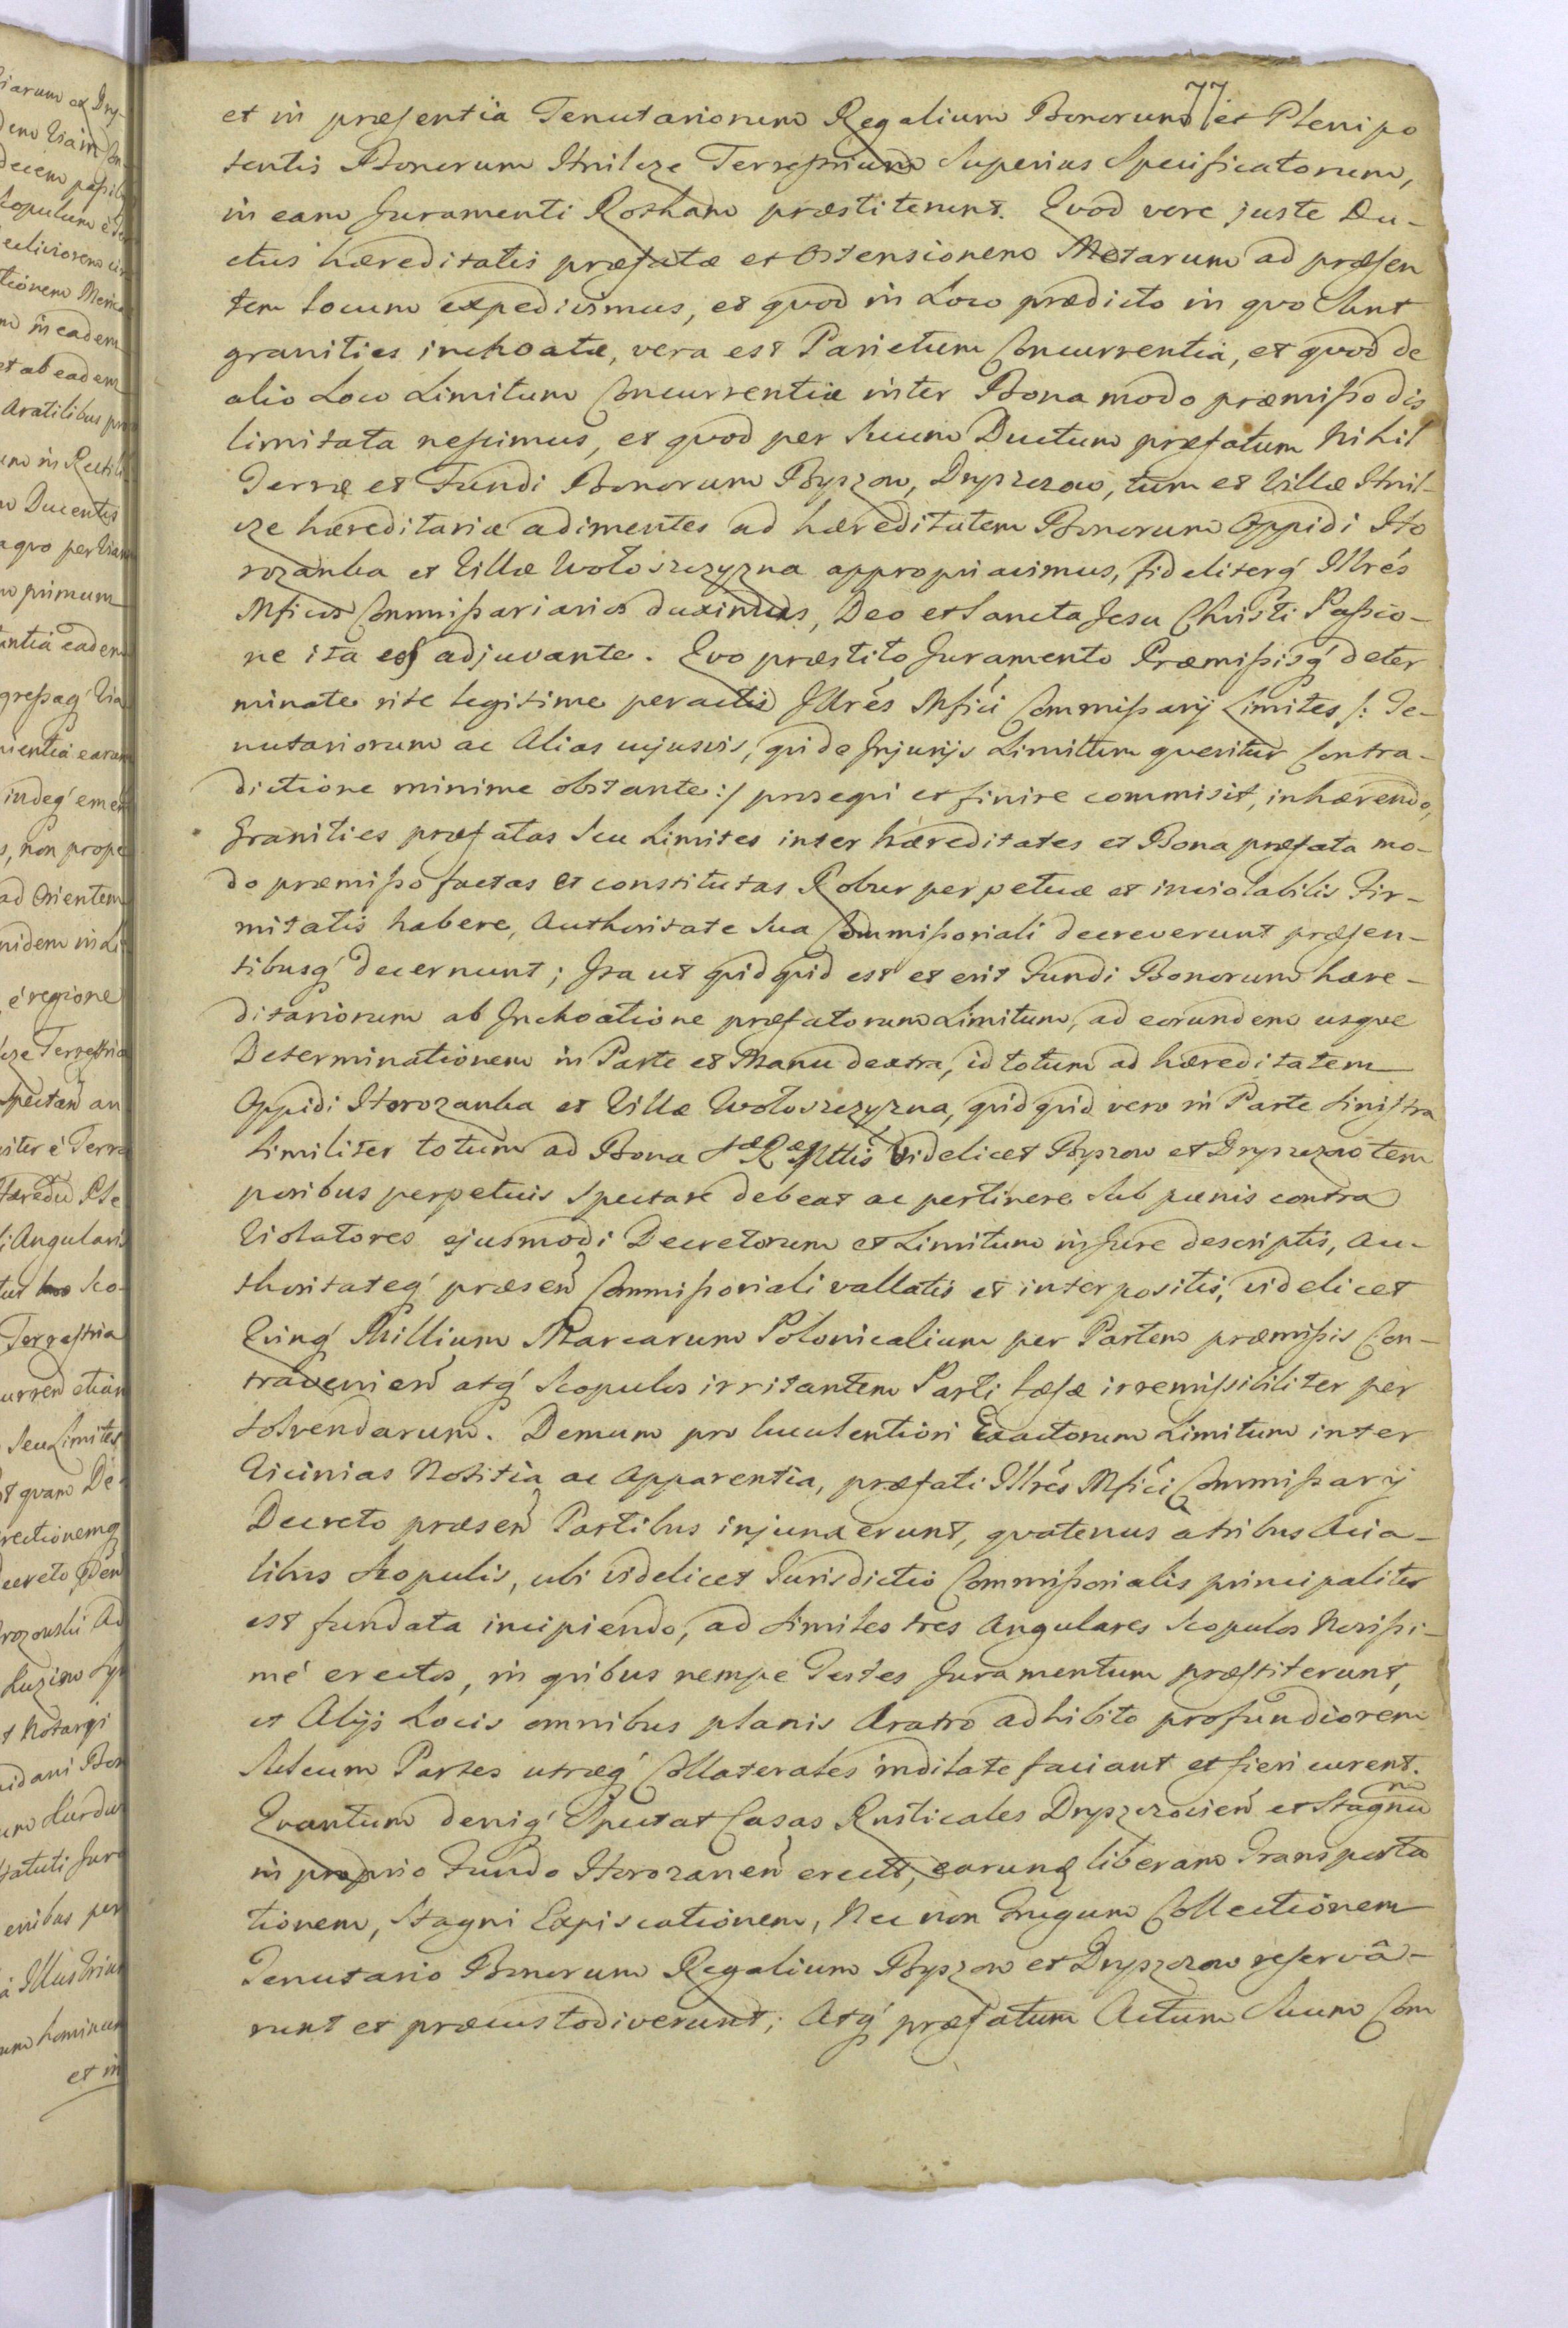 77
et in præsentia Tenutariorum Regalium Bonorum et Plenipo
tentis Bonorum Hnilcze Terrestrium Superius Specificatorum,
in eam Juramenti Rotham præstiterunt. Qvod vere juste Du-
ctus hæreditatis præfatæ et Ostensionem Metarum ad præsen
tem locum expedivimus, et qvod in Loco prædicto in qvo Sunt
granities inchoatæ, vera est Parietum Concurrentia, et qvod de
alio Loco Limitum Concurrentiæ inter Bona modo præmisso dis
limitata nescimus, et qvod per Suum Ductum præfatum Nihil
Terræ et Fundi Bonorum Byszow, Dryszczow, tum et Villæ Hnil-
cze hæreditariæ adimentes ad hæreditatem Bonorum Oppidi Ho
rozanka et Villæ Wołoszczyzna appropriavimus, fideliterq́ Illrés
Mficos Commissariarios duximus, Deo et Sancta Jesu Christi Passio-
ne ita eos adjuvante. Qvo præstito Juramento Præmissisq́ deter
minate rite legitime peractis Illrés Mfici Commissarij Limites /: Te-
nutariorum ac Alias cujusvis, qui de Injurijs Limitum qveritur Contra-
dictione minime obstante :/ proseqvi et finire commisit, inhærendo,
Granities præfatas Seu Limites inter hæreditates et Bona præfata mo-
do præmisso factas et constitutas Robur perpetuæ et inviolabilis Fir-
mitatis habere, Authoritate Sua Commissoriali decreverunt præsen-
tibusq́ decernunt; Ita ut qvidqvid est et erit Fundi Bonorum hære-
ditariorum ab Inchoatione præfatorum Limitum, ad eorundem usqve
Determinationem in Parte et Manu dextra, id totum ad hæreditatem
Oppidi Horozanka et Villæ Wołoszczyzna, qvidqvid vero in Parte Sinistra
Similiter totum ad Bona SæRæMttis videlicet Byszow et Dryszczow tem
poribus perpetuis Spectare debeat ac pertinere Sub pœnis contra
Violatores ejusmodi Decretorum et Limitum in Jure descriptis, Au-
thoritateq́ præsen̄ Commissoriali vallatis et interpositis, videlicet
Qvinq́ Millium Marcarum Polonicalium per Partem præmissis Con-
travenien̄ atq́ Scopulos irritantem Parti læsæ irremissibiliter per
solvendarum. Demum pro luculentiori Exactorum Limitum inter
Vicinias Notitia ac Apparentia, præfati Illrés Mfici Commissarij
Decreto præsen̄ Partibus injunxerunt, qvatenus a tribus Acia-
libus Scopulis, ubi videlicet Jurisdictio Commissorialis principaliter
est fundata incipiendo, ad Similes tres Angulares Scopulos Novissi-
mé erectos, in qvibus nempe Testes Juramentum præstiterunt,
et Alijs Locis omnibus planis Aratro adhibito profundiorem
Sulcum Partes utræq́ Collaterales inditate faciant et fieri curent.
Qvantum deniq́ Spectat Casas Rusticales Dryszczovien̄ et Stagnum
in proprio Fundo Horozanen̄ erect, earunq liberam Transporta
tionem, Stagni Expiscationem, Nec non Frugum Collectionem
Tenutario Bonorum Regalium Byszow et Dryszczow reservâ-
runt et præcustodiverunt; Atq́ præfatum Actum Suum Com